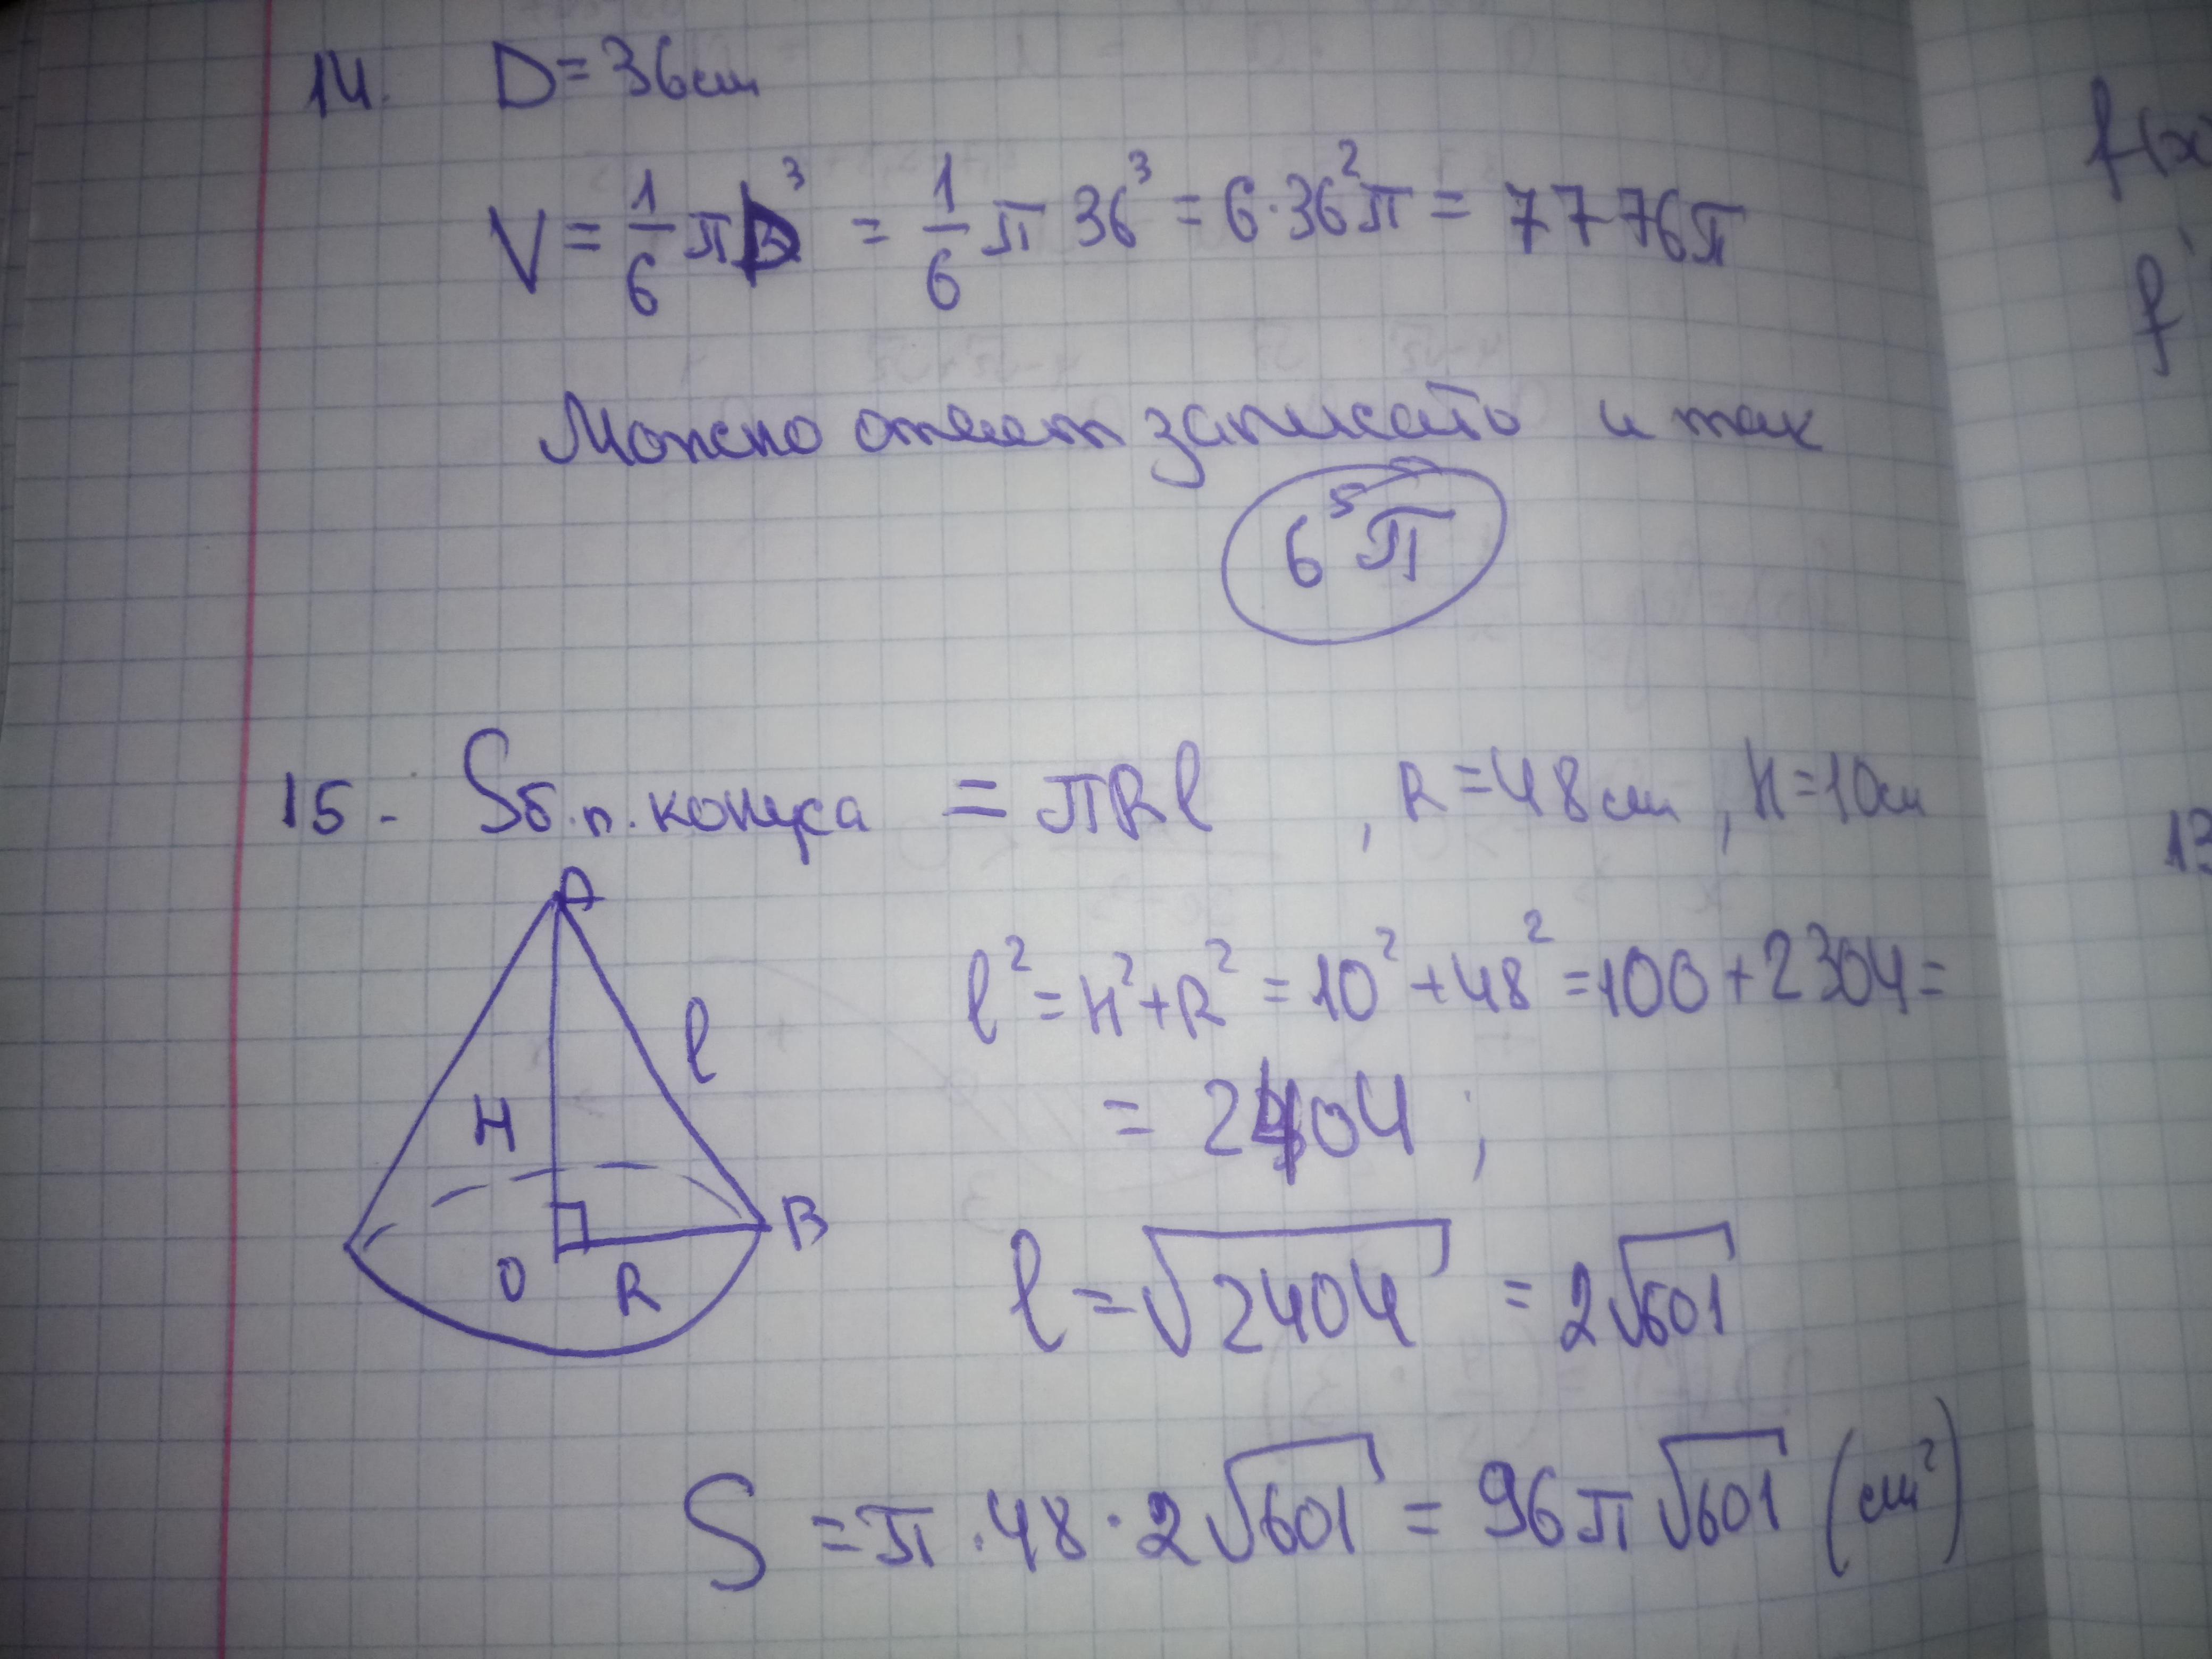 14. D = 36см
V = 1/6 πD³ = 1/6 π 36³ = 6·36²π = 7776π
Можно ответ записать и так
6⁵π
15. Sб.п. конуса = πRl , R = 48 см , H = 10см
A
l² = H² + R² = 10² + 48² = 100 + 2304 =
l
H
= 2404 ;
B
O R
l = √2404 = 2√601
S = π · 48 · 2√601 = 96π√601 (см²)
f(x
f'
13